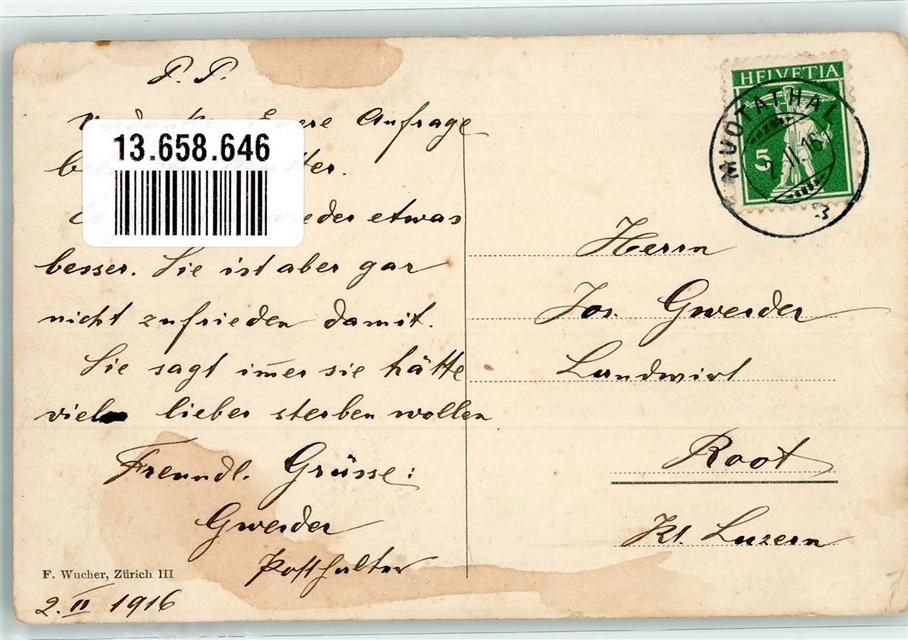 P. P.
Eure Anfrage
13.658.646
wieder etwas
besser. Sie ist aber gar
nicht zufrieden damit.
Sie sagt immer sie hätte
viel lieber sterben wollen
Freundl. Grüsse:
Gwerder
Posthalter
F. Wucher, Zürich III
2. II 1916
HELVETIA
5
MUOTATHAL
2.II.16.
3
Herrn
Jos. Gwerder
Landwirt
Root
Kt. Luzern